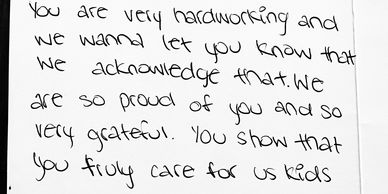 You are very hardworking and
we wanna let you know that
we acknowledge that. We
are so proud of you and so
very grateful. You show that
you truly care for us kids